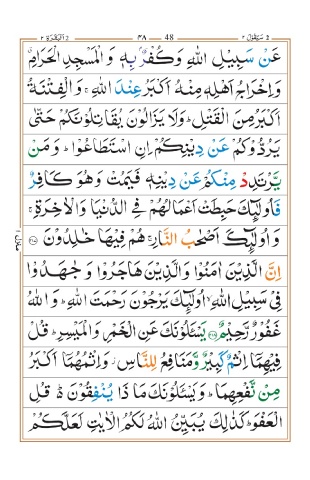 البقرة ٢ ٣٨ 48 سيقول ٢
عَنْ سَبِيْلِ اللّٰهِ وَكُفْرٌۢ بِهٖ وَالْمَسْجِدِ الْحَرَامِ
وَاِخْرَاجُ اَهْلِهٖ مِنْهُ اَكْبَرُ عِنْدَ اللّٰهِ ۚ وَالْفِتْنَةُ
اَكْبَرُ مِنَ الْقَتْلِ ؕ وَلَا يَزَالُوْنَ يُقَاتِلُوْنَكُمْ حَتّٰى
يَرُدُّوْكُمْ عَنْ دِيْنِكُمْ اِنِ اسْتَطَاعُوْا ؕ وَمَنْ
يَّرْتَدِدْ مِنْكُمْ عَنْ دِيْنِهٖ فَيَمُتْ وَهُوَ كَافِرٌ
فَاُولٰٓئِكَ حَبِطَتْ اَعْمَالُهُمْ فِى الدُّنْيَا وَالْاٰخِرَةِ ۚ
وَاُولٰٓئِكَ اَصْحٰبُ النَّارِ ۚ هُمْ فِيْهَا خٰلِدُوْنَ
اِنَّ الَّذِيْنَ اٰمَنُوْا وَالَّذِيْنَ هَاجَرُوْا وَجٰهَدُوْا
فِىْ سَبِيْلِ اللّٰهِ ۙ اُولٰٓئِكَ يَرْجُوْنَ رَحْمَتَ اللّٰهِ ؕ وَاللّٰهُ
غَفُوْرٌ رَّحِيْمٌ يَسْـَٔلُوْنَكَ عَنِ الْخَمْرِ وَالْمَيْسِرِ ؕ قُلْ
فِيْهِمَآ اِثْمٌ كَبِيْرٌ وَّمَنَافِعُ لِلنَّاسِ ؗ وَاِثْمُهُمَآ اَكْبَرُ
مِنْ نَّفْعِهِمَا ؕ وَيَسْـَٔلُوْنَكَ مَاذَا يُنْفِقُوْنَ ؕ قُلِ
الْعَفْوَ ؕ كَذٰلِكَ يُبَيِّنُ اللّٰهُ لَكُمُ الْاٰيٰتِ لَعَلَّكُمْ